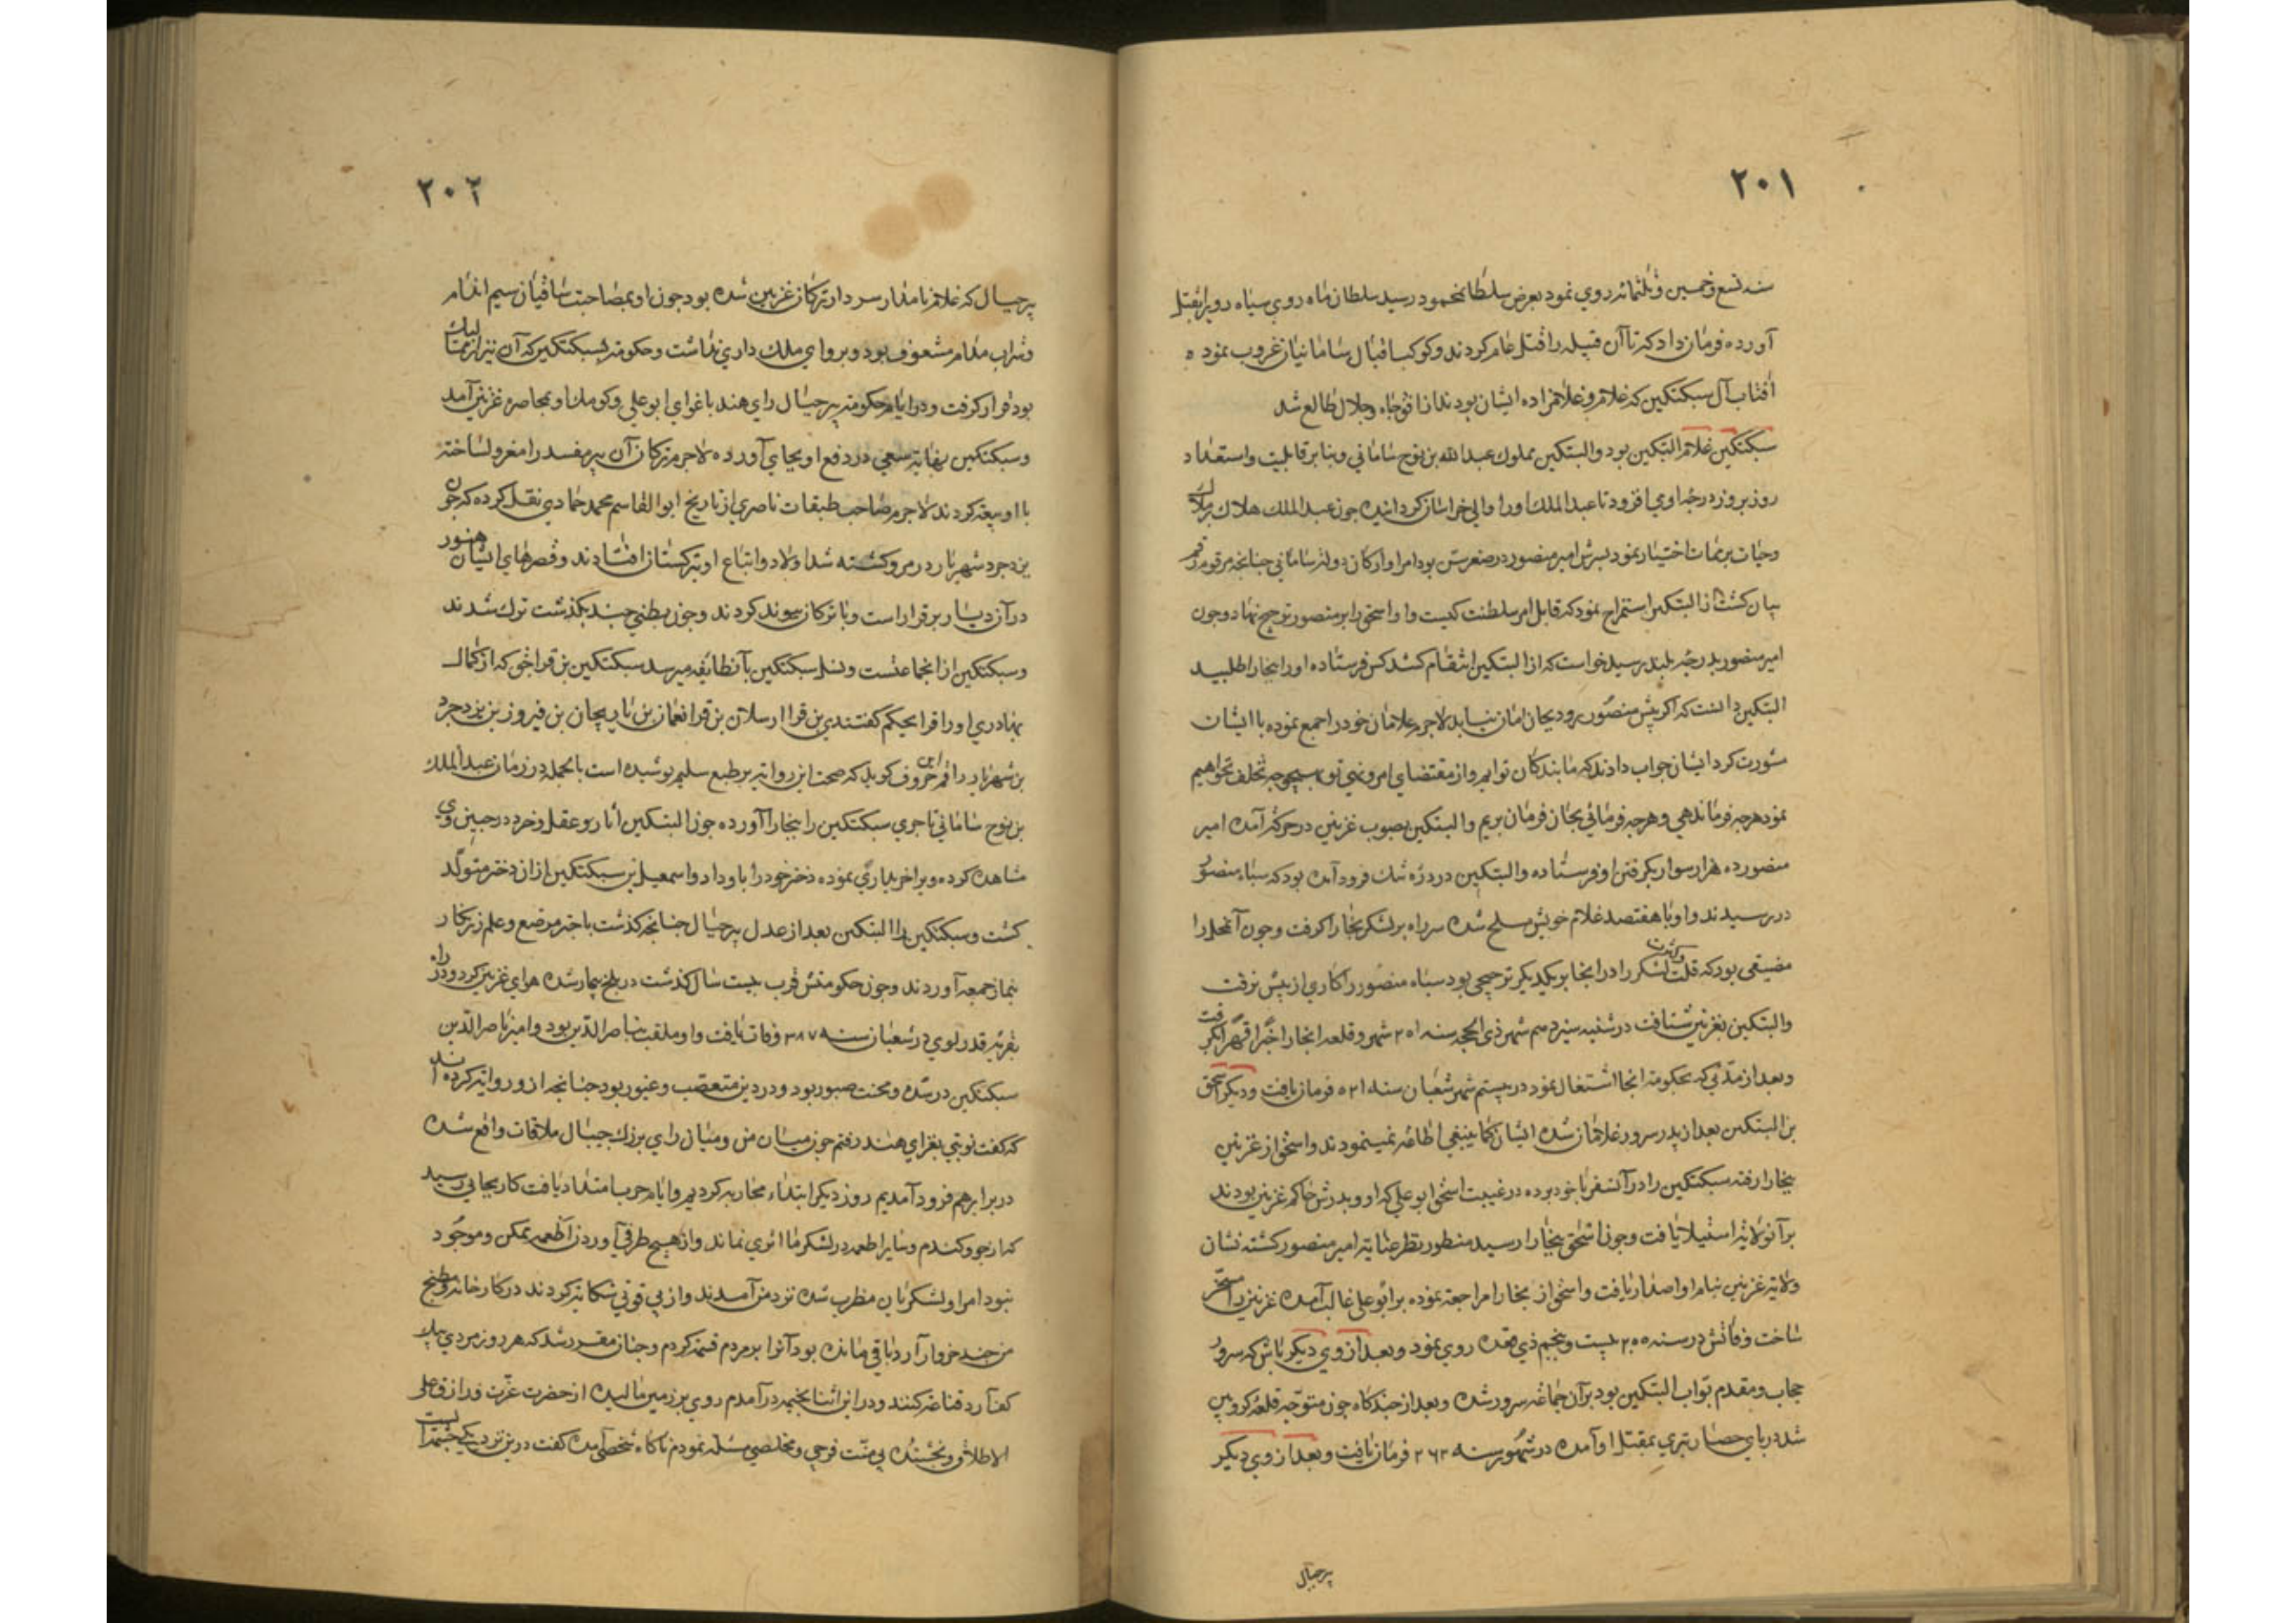 ۲۰۱
سنه تسع و خمسین و ثلثمائه روی نمود بعرض سلطانمحمود رسید سلطان ماه روی سیاه رویرا بقتل
آورده فرمان داد که تا آن قبیله را قتل عام کردند و کوکب اقبال سامانیان غروب نمود ه
افتاب آل سبکتکین که غلام و غلامزاده ایشان بودند از افق جاه و جلال طالع شد
سبکتکین غلام البتکین بود و البتکین مملوک عبدالله بن نوح سامانی و بنابر قابلیت و استعداد
روز بروز درجه اوی افزود تا عبدالملک اورا والی خراسان کردانید چون عبدالملک هلاک بر ملک
وحیات بر ممات اختیار نمود پسرش امیر منصور در صغر سن بود امرا و ارکان دولت سامانی چنانچه مرقوم رقم
بیان کشت از البتکین استمزاج نمود که قابل امر سلطنت کیست و او اسحق را بر منصور ترجیح نهاد و چون
امیر منصور بدرجه بلند رسید خواست که از البتکین انتقام کشد کس فرستاده اورا ببخارا طلبید
البتکین دانست که اکر پیش منصور رود بجان امان نیابد لاجرم غلامان خود را جمع نموده با ایشان
مشورت کرد ایشان جواب دادند که ما بندکان توایم و از مقتضای امر و نهی تو بهیچوجه تخلف نخواهیم
نمود هرچه فرماندهی و هرچه فرمائی بجان فرمان بریم و البتکین بصوب غزنین در حرکت آمده امیر
منصور ده هزار سوار بکرفتن او فرستاده و البتکین در دره تنک فرود آمده بود که سپاه منصور
در رسیدند و او با هفتصد غلام خویش مسلح شده سر راه بر لشکر بخارا کرفت و چون آنمحل را
مضیقی بود که قلت و کثرت لشکر را در انجا بر یکدیکر ترجیحی نبود سپاه منصور را کاری از پیش نرفت
والبتکین بغزنین شتافت در شنبه سیزدهم شهر ذی الحجه سنه ۳۵۱ شهر و قلعه انجا را جبرا قهرا بکرفت
و بعد از مدتی که بحکومت انجا اشتغال نمود در بیستم شهر شعبان سنه ۵۲۱ فرمان یافت و دیکر اسحق
بن البتکین بعد از پدر سرور غلامان شده ایشان کما ینبغی اطاعه نمینمودند و اسحق از غزنین
ببخارا رفته سبکتکین را در آنسفر با خود برده در غیبت اسحق ابو علی که او و پدرش حاکم غزنین بودند
بر آنولایت استیلا یافت و چون اسحق ببخارا رسید منظور نظر عنایت امیر منصور کشته نشان
ولایت غزنین بنام او اصدار یافت و اسحق از بخارا مراجعت نموده بر ابو علی غالب آمده غزنین را مسخر
ساخت وفاتش در سنه ۳۵۵ بیست و پنجم ذی قعده روی نمود و بعد از وی دیکر باش که سرور
حجاب و مقدم نواب البتکین بود بر آن جماعه سرور شده و بعد از چندکاه چون متوجه قلعه
شد در پای حصار بتیری بمقتل او آمده در شهور سنه ۳۶۲ فرمان یافت و بعد از وی دیکر
پرجیال
۲۰۲
پرجیال که غلام نامدار سردار ترکان غزنین شده بود چون او بمصاحبت ساقیان سیم اندام
و شراب مدام مشعوف بود و پروای ملک داری نداشت و حکومت بسبکتکین که آن نیز از ممالیک
بود قرار کرفت و در ایام حکومت پرجیال رای هند باغوای ابوعلی و کومک او بمحاصره غزنین آمد
و سبکتکین نهایت سعی در دفع او بجای آورده لاجرم ترکان آن پیر مفسد را معزول ساخته
با او بیعت کردند لاجرم صاحب طبقات ناصری از تاریخ ابوالقاسم محمد حمادی نقل کرده که چون
یزدجرد شهریار در مرو کشته شد اولاد و اتباع او بترکستان افتادند و قصرهای ایشان هنوز
در آن دیار برقرار است و با ترکان پیوند کردند و چون بطنی چند بکذشت ترک شدند
و سبکتکین از انجماعتست و نسل سبکتکین بآنطایفه میرسد سبکتکین بن قراخق که از کمال
بهادری اورا قرابحکم کفتندی بن قرا ارسلان بن قرا نعمان بن بن فیروز بن یزدجرد
بن شهریار راقم این حروف کوید که صحت این روایت بر طبع سلیم پوشیده است بالجمله در زمان عبدالملک
بن نوح سامانی تاجری سبکتکین را ببخارا آورده چون البتکین آثار عقل و خرد در جبین وی
مشاهده کرده ویرا خریداری نموده دختر خود را باو داد و اسمعیل بن سبکتکین از ان دختر متولد
کشت و سبکتکین را البتکین بعد از عدل پرجیال چنانچه کذشت با چتر مرصع و علم زرنکار
بنماز جمعه آوردند و چون حکومتش قرب بیست سال کذشت در بلخ بیمار شده هوای غزنین کرد و در راه
بقریه قدر لوی در شعبان سنه ۳۸۷ وفات یافت و او ملقب بناصرالدین بود و امیر ناصرالدین
سبکتکین در شده و محنت صبور بود و در دین متعصب و غیور بود چنانچه از و روایت کرده اند
که کفت نوبتی بغزای هند رفتم چون میان من و میان رای بزرک جیپال ملاقات واقع شده
در برابر هم فرود آمدیم روز دیکر ابتداء محاربه کردیم و ایام حرب امتداد یافت کار بجائی رسید
که از جو و کندم و سایر اطعمه در لشکر ما اثری نماند و از هیچ طرف آوردن اطعمه ممکن و موجود
نبود امرا و لشکریان مظرب شده نزد من آمدند و از بی قوتی شکایت کردند در کارخانه مطبخ
من چند خروار آرد باقی مانده بود آنرا بر مردم قسمت کردم و چنان مقرر شد که هر روز مردی بیک
کف آرد قناعه کنند و در این اثنا بخیمه در آمدم روی بر زمین مالیده از حضرت عزت و رازق علی
الاطلاق و بخشنده بی منت فرجی و مخلصی مسئلت نمودم ناکاه شخصی آمده کفت در این نزدیکی چشمه ایست